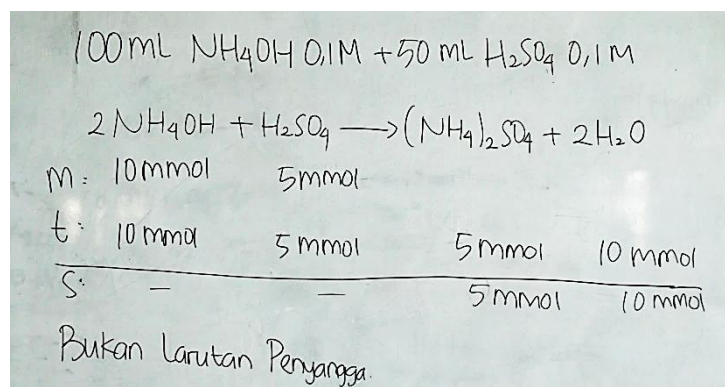 100mL NH4OH 0,1M + 50 mL H2SO4 0,1 M
2 NH4OH + H2SO4 → (NH4)2SO4 + 2H2O
M: 10mmol 5mmol
t: 10 mmol 5 mmol 5 mmol 10 mmol
S: - - 5 mmol 10 mmol
Bukan Larutan Penyangga.